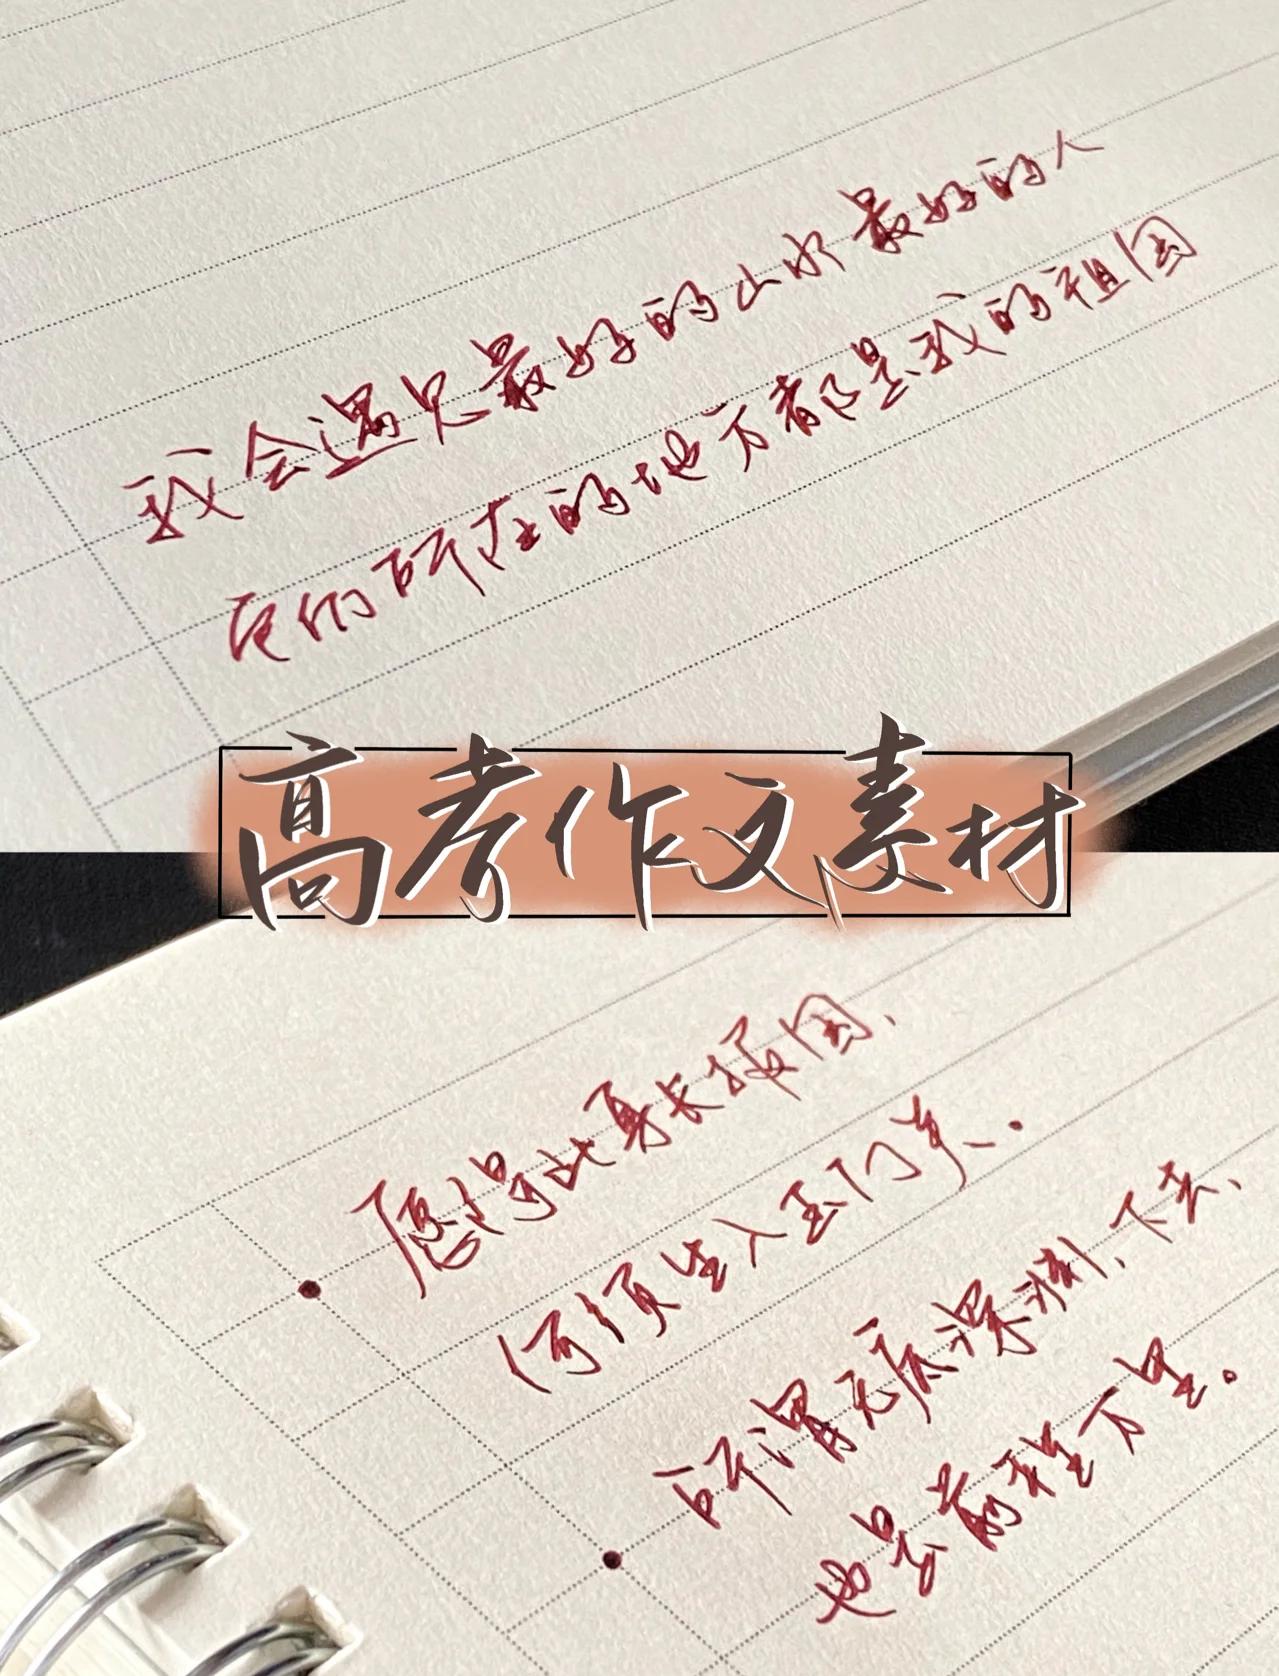 我会遇见最好的山水最好的人
它们所在的地方都是我的祖国
高考作文素材
愿得此身长报国、
何须生入玉门关、.
所谓无底深渊、下去、
也是前程万里。